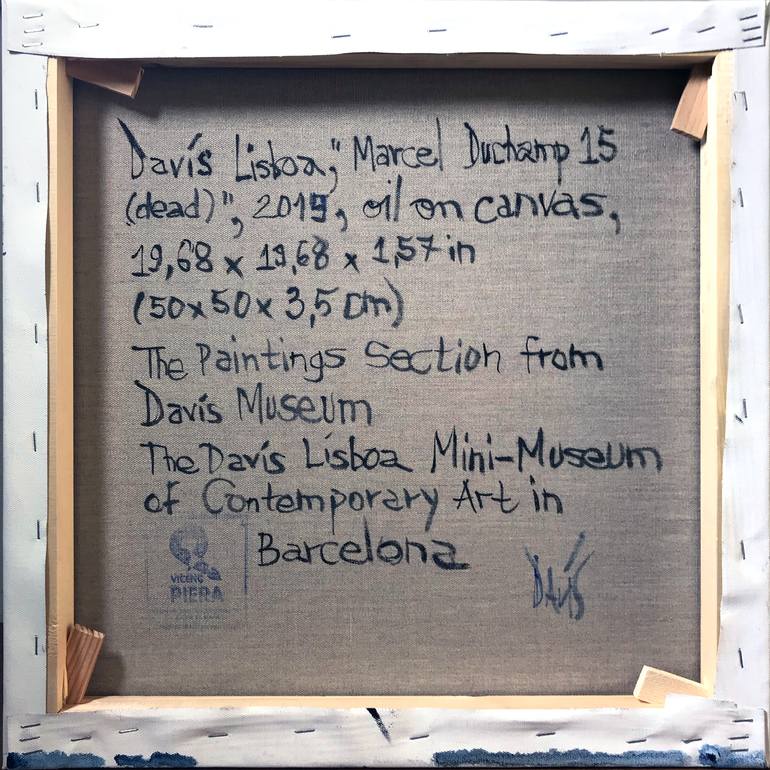 Davís Lisboa, "Marcel Duchamp 15
(dead)", 2019, oil on canvas,
19,68 x 19,68 x 1,57 in
(50 x 50 x 3,5 cm)
The Paintings Section from
Davís Museum
The Davís Lisboa Mini-Museum
of Contemporary Art in
Barcelona
VICENÇ
PIERA
DAVÍS